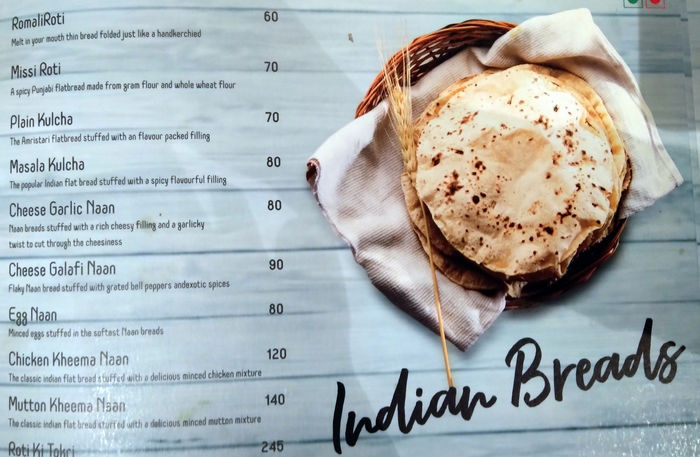 RomaliRoti 60
Melt in your mouth thin bread folded just like a handkerchied
Missi Roti 70
A spicy Punjabi flatbread made from gram flour and whole wheat flour
Plain Kulcha 70
The Amristari flatbread stuffed with an flavour packed filling
Masala Kulcha 80
The popular Indian flat bread stuffed with a spicy flavourful filling
Cheese Garlic Naan 80
Naan breads stuffed with a rich cheesy filling and a garlicky
twist to cut through the cheesiness
Cheese Galafi Naan 90
Flaky Naan bread stuffed with grated bell peppers andexotic spices
Egg Naan 80
Minced eggs stuffed in the softest Naan breads
Chicken Kheema Naan 120
The classic indian flat bread stuffed with a delicious minced chicken mixture
Mutton Kheema Naan 140
The classic indian flat bread stuffed with a delicious minced mutton mixture
Roti Ki Tokri 245
Indian Breads